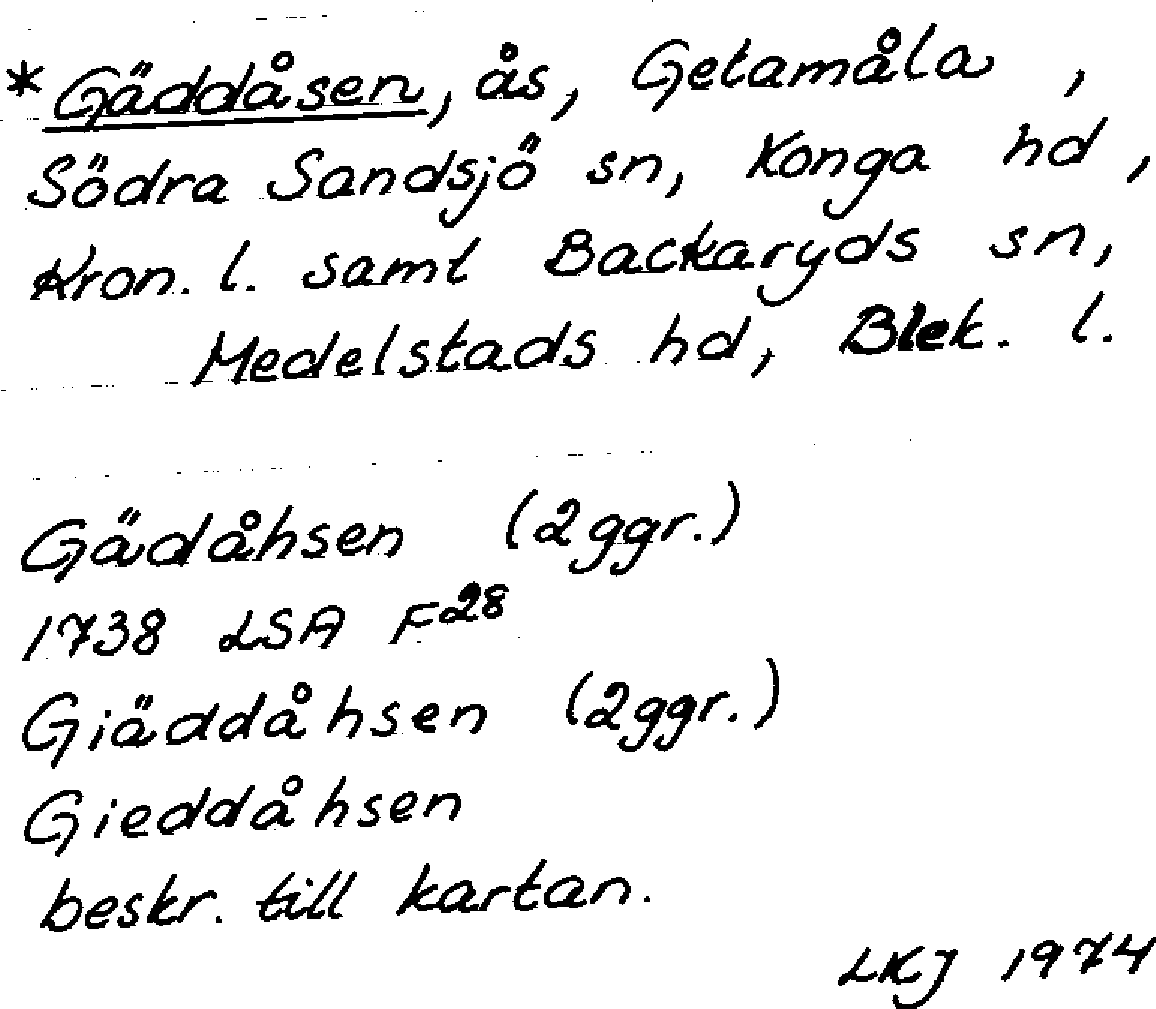 *Gäddåsen, ås, Getamåla,
Södra Sandsjö sn, Konga hd,
Kron. l. samt Backaryds sn,
Medelstads hd, Blek. l.
Gädåhsen (2ggr.)
1738 LSA F28
Giäddåhsen (2ggr.)
Gieddåhsen
beskr. till kartan.
LKJ 1974